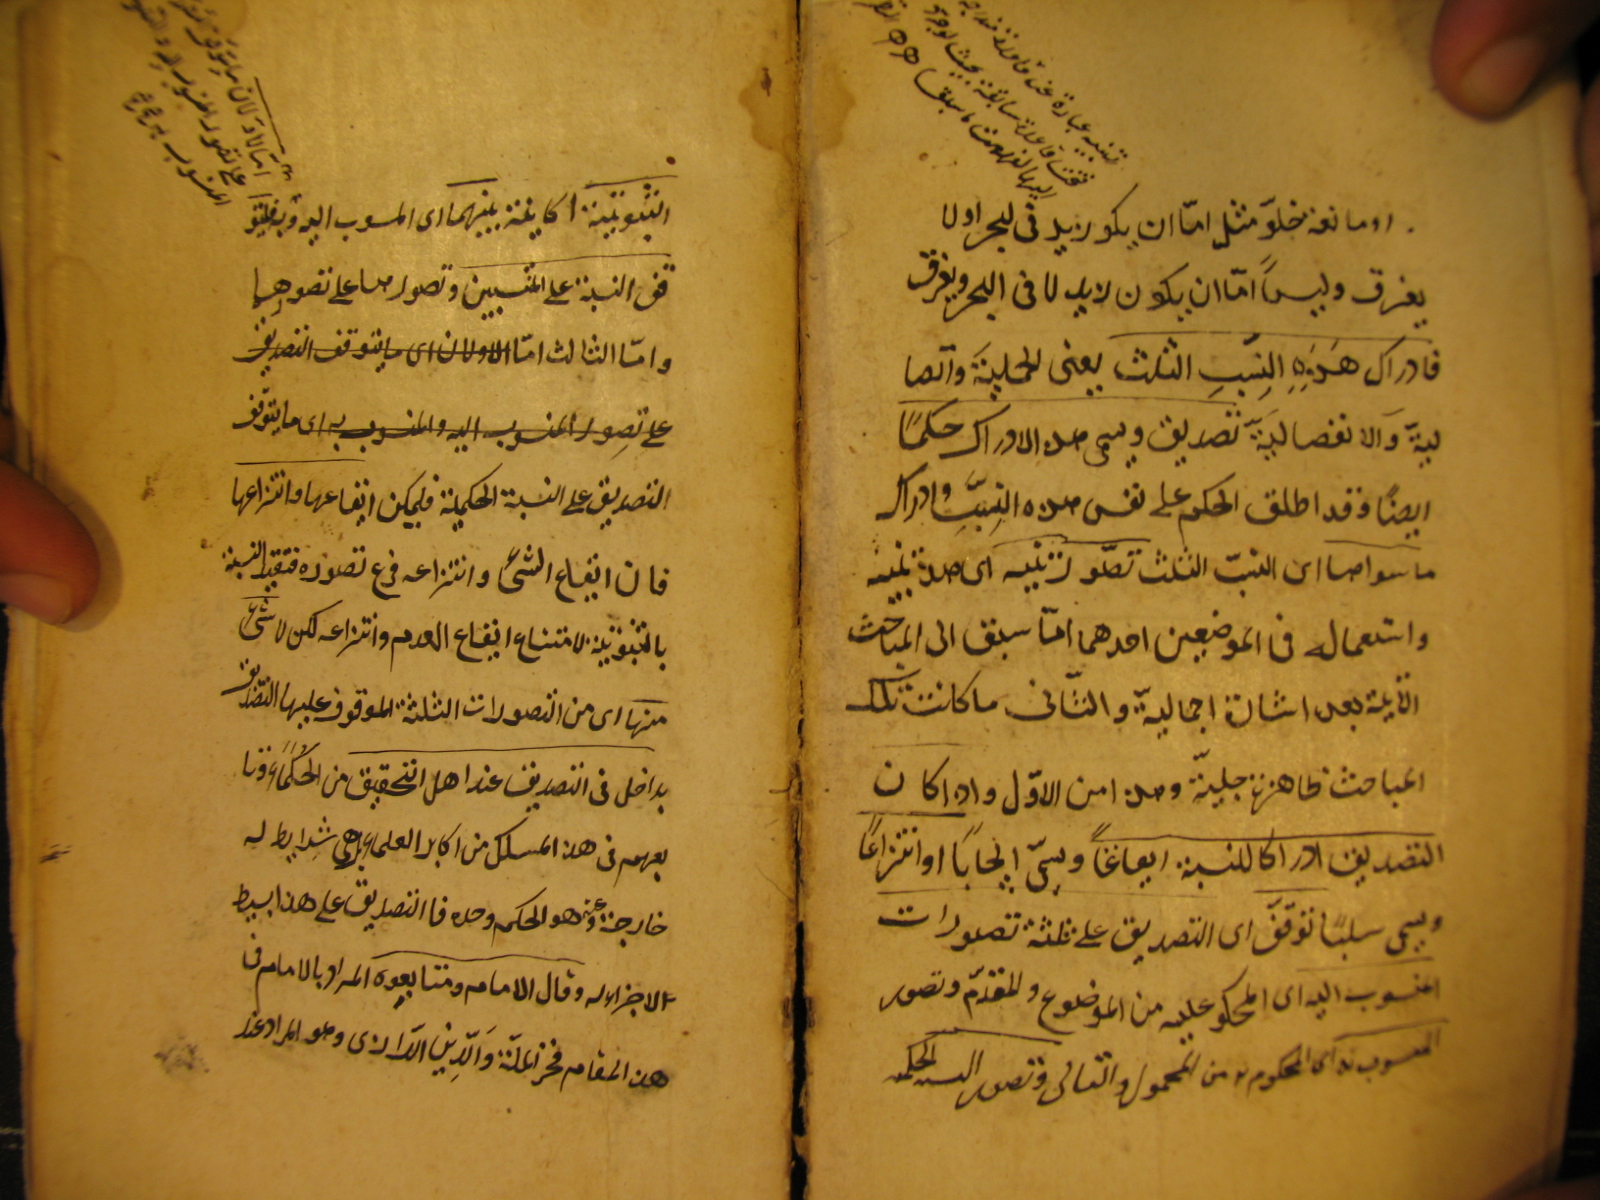 او مانعة خلوّ مثل امّا ان يكون زيد فى البحر او لا
يغرق وليس امّا ان يكون زيد لا فى البحر ويغرق
فادراك هَذِهِ النِسَبِ الثلث يعنى الحملية واتصا
لية والانفصالية تصديق ويسمى هذه الادراك حكمًا
ايضًا وقد اطلق الحكم على نفس هذه النِسَبِ وادراك
ما سواها اى النسب الثلث تصّور تنبيه اى هذا تنبيه
واستعماله فى الموضعين احدهما امّا سبق الى المباحث
الاتية بعد اشارة اجمالية والثّانى ما كانت تلك
المباحث ظاهرة جليّة وهذا من الاوّل واذا كان
التصديق ادراكا للنسبة ايقاعًا ويسمّى ايجابًا او انتزاعًا
ويسمى سلبًا توقّف اى التصديق على ثلثة تصورات
المنسوب اليه اى المحكوم عليه من الموضوع والمقدّم وتصور
المنسوب به اى المحكوم به من المحمول والتالى وتصور النسبة الحكمية
تنبيه عبارة عن
الثبوتية الكاينة بينهما اى المنسوب اليه وبه
قف النسبة على المنتسبين وتصورها على تصورهما
وامّا الثالث امّا الاولان اى ما يتوقف التصديق
على تصور المنسوب اليه والمنسوب به اى ما يتوقف
التصديق على النسبة الحكمية فليمكن ايقاعها وانتزاعها
فان ايقاع الشئ وانتزاعه فرع تصوره فتقييد النسبة
بالثبوتية لامتناع ايقاع العدم وانتزاعه لكن لا شئ
منها اى من التصورات الثلثة الموقوف عليها التصديق
بداخل فى التصديق عند اهل التحقيق من الحكماء وتا
بعهم فى هذا المسلك من اكابر العلماء بل هى شرايط له
خارجة عنه وهو الحكم وحده فالتصديق على هذا بسيط
لا جزء له وقال الامام ومتابعوه المراد بالامام فى
هذا المقام فخر الملّة وَالدّين الرّازى وهو المراد عند